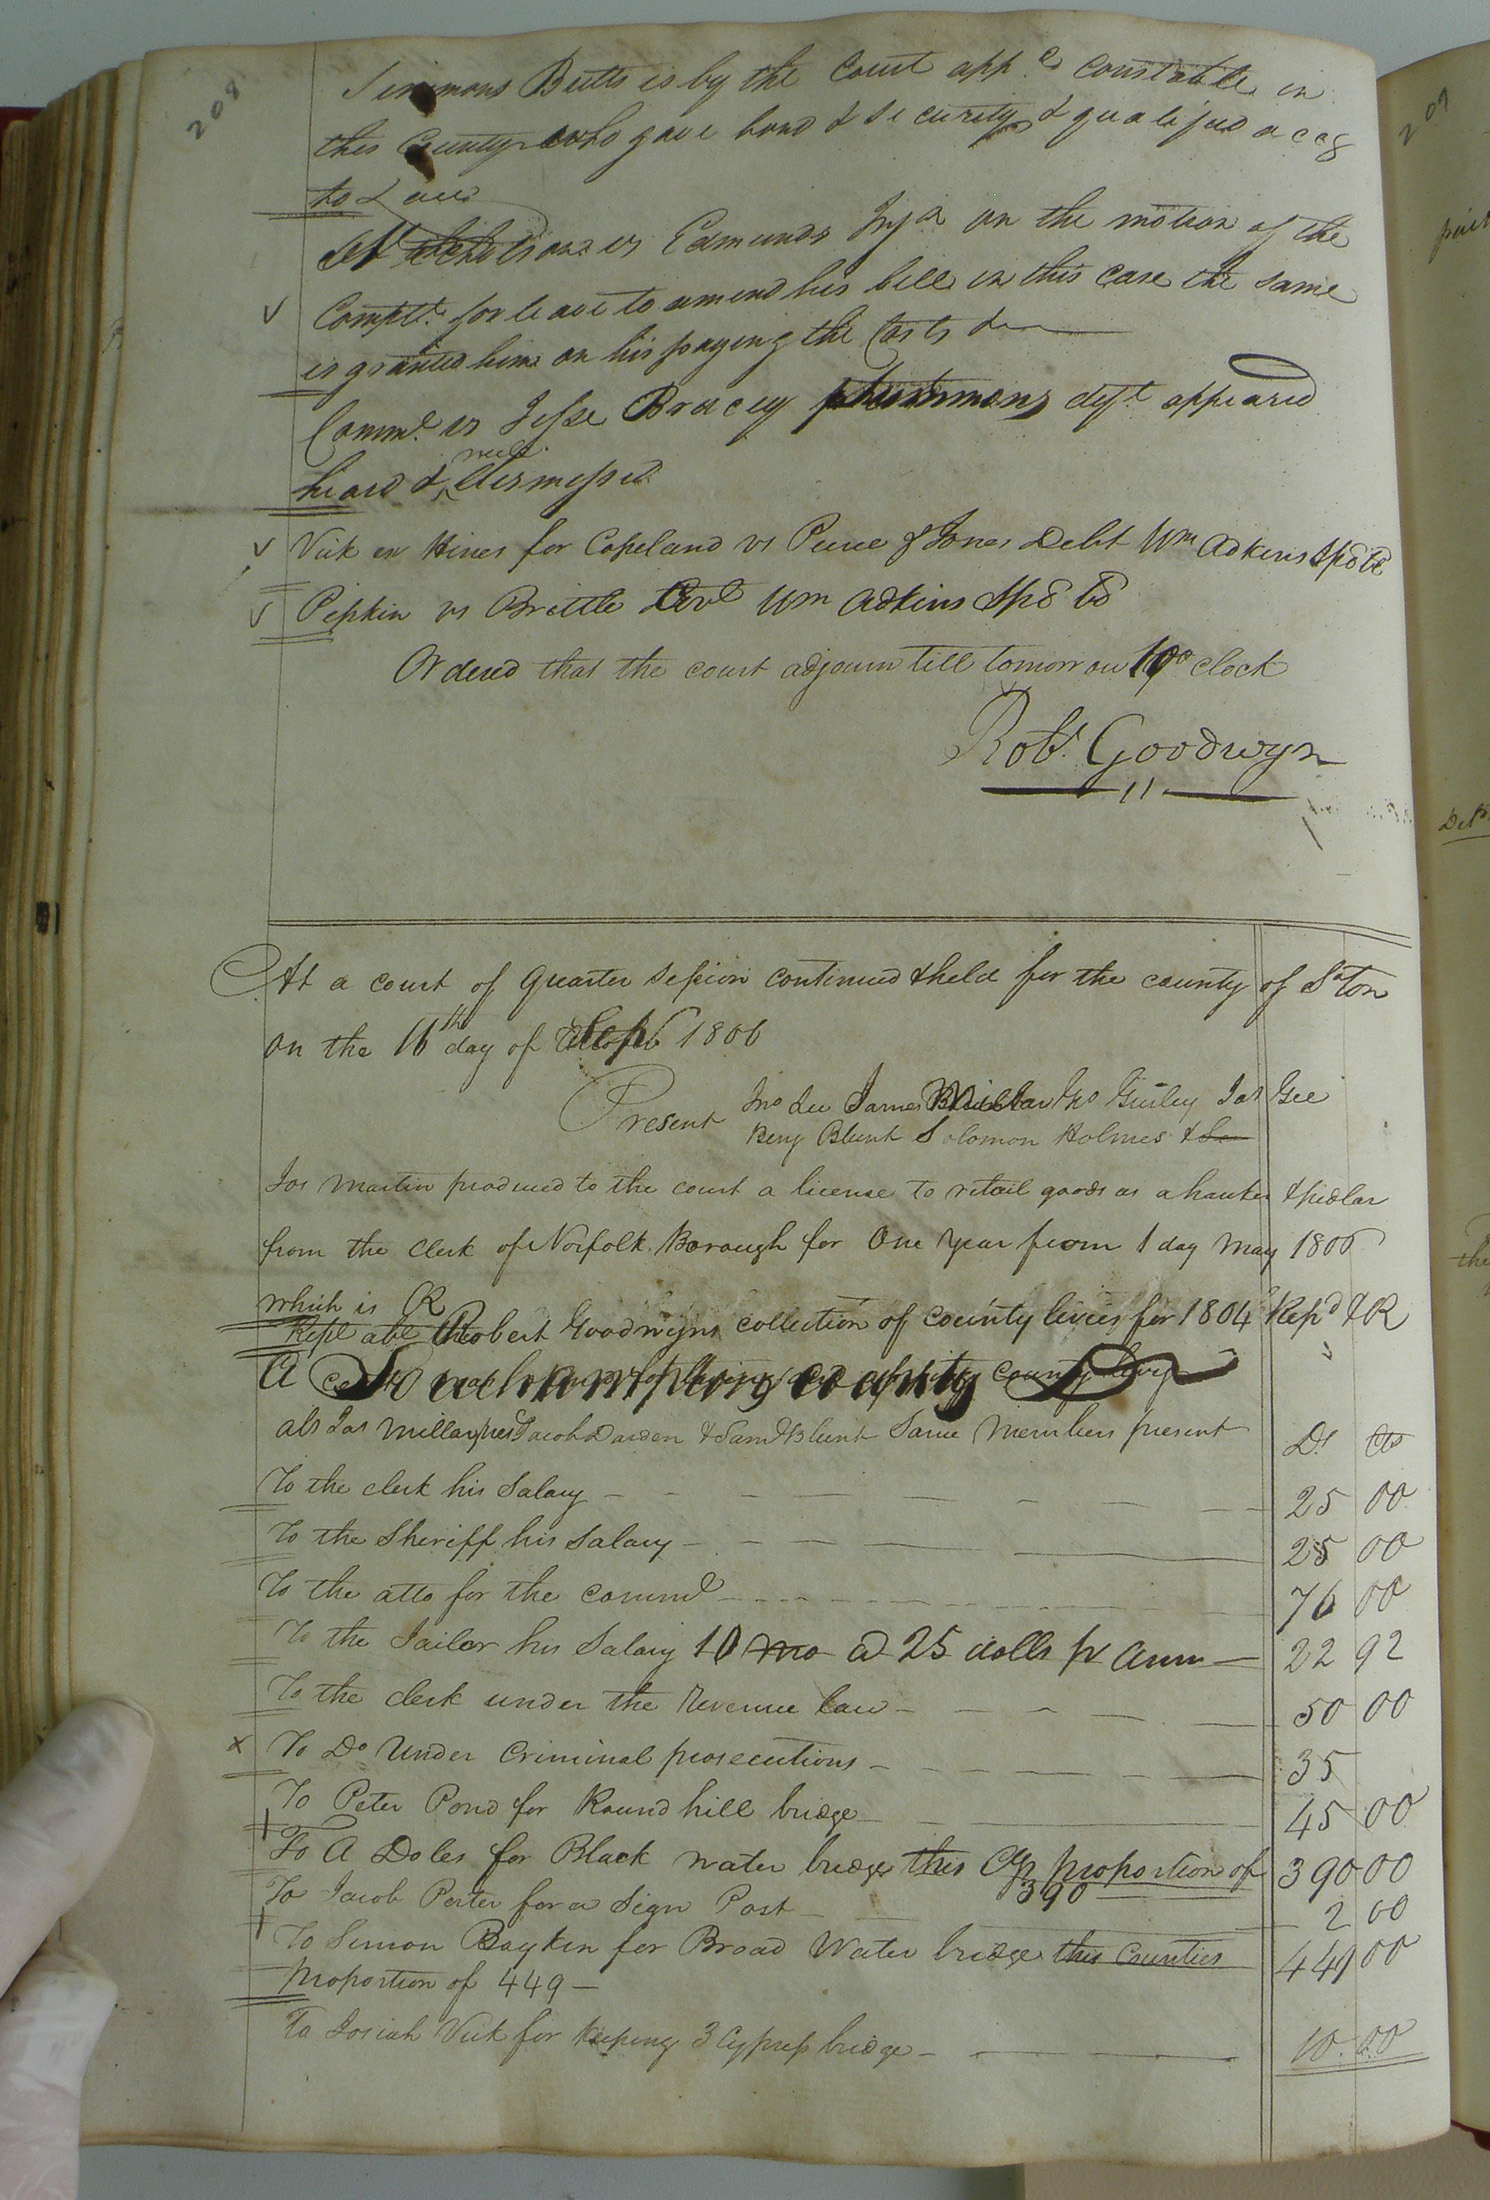 208
Simmons Butts is by the Court app.d constable in
this County who gave bond & security & qualified accg
to Law
Nicholson vs Edmunds Inj.n on the motion of the
Complt. for leave to amend his bill in this case the same
is granted him on his paying the Costs
Commo. vs Jesse Bracey summons deft appeared
heard & dismissed
Vick ex Hines for Copeland vs Purce & Jones Debt Wm Adkins Sps bd
Pipkin vs Brittle Wm Adkins Sps bd
Ordered that the court adjourn till tomorrow 10 o clock
Robt. Goodwyn
At a court of quarter session continued & held for the county of S.ton
on the 16th day of Sept 1806
Present Jno Lee James Millar Gurley Jas Gee
Benj Blunt Solomon Holmes &
Jos Martin produced to the court a license to retail goods as a hawker & pedlar
from the clerk of Norfolk Borough for One year from 1 day May 1806
which is R
Robert Goodwyns collection of county levies for 1804 Rep'd & R
A
Southampton county
abs Jas Millar pres Jacob Darden & Saml Blunt Same Members present
Ds Cts
To the clerk his Salary 25 00
To the Sheriff his Salary 25 00
To the atto for the commo 76 00
To the Jailor his Salary 10 mo a 25 dolls pr Ann 22 92
To the clerk under the Revenue law 50 00
x To Do Under Criminal prosecutions 35
To Peter Pond for Round hill bridge 45 00
To A Doles for Black water bridge this Cy proportion of 390 00
390
To Jacob Porter for a Sign Post 2 00
To Simon Boykin for Broad Water bridge this Counties 449 00
proportion of 449
To Josiah Vick for keeping 3 Cypress bridge 10.00
209